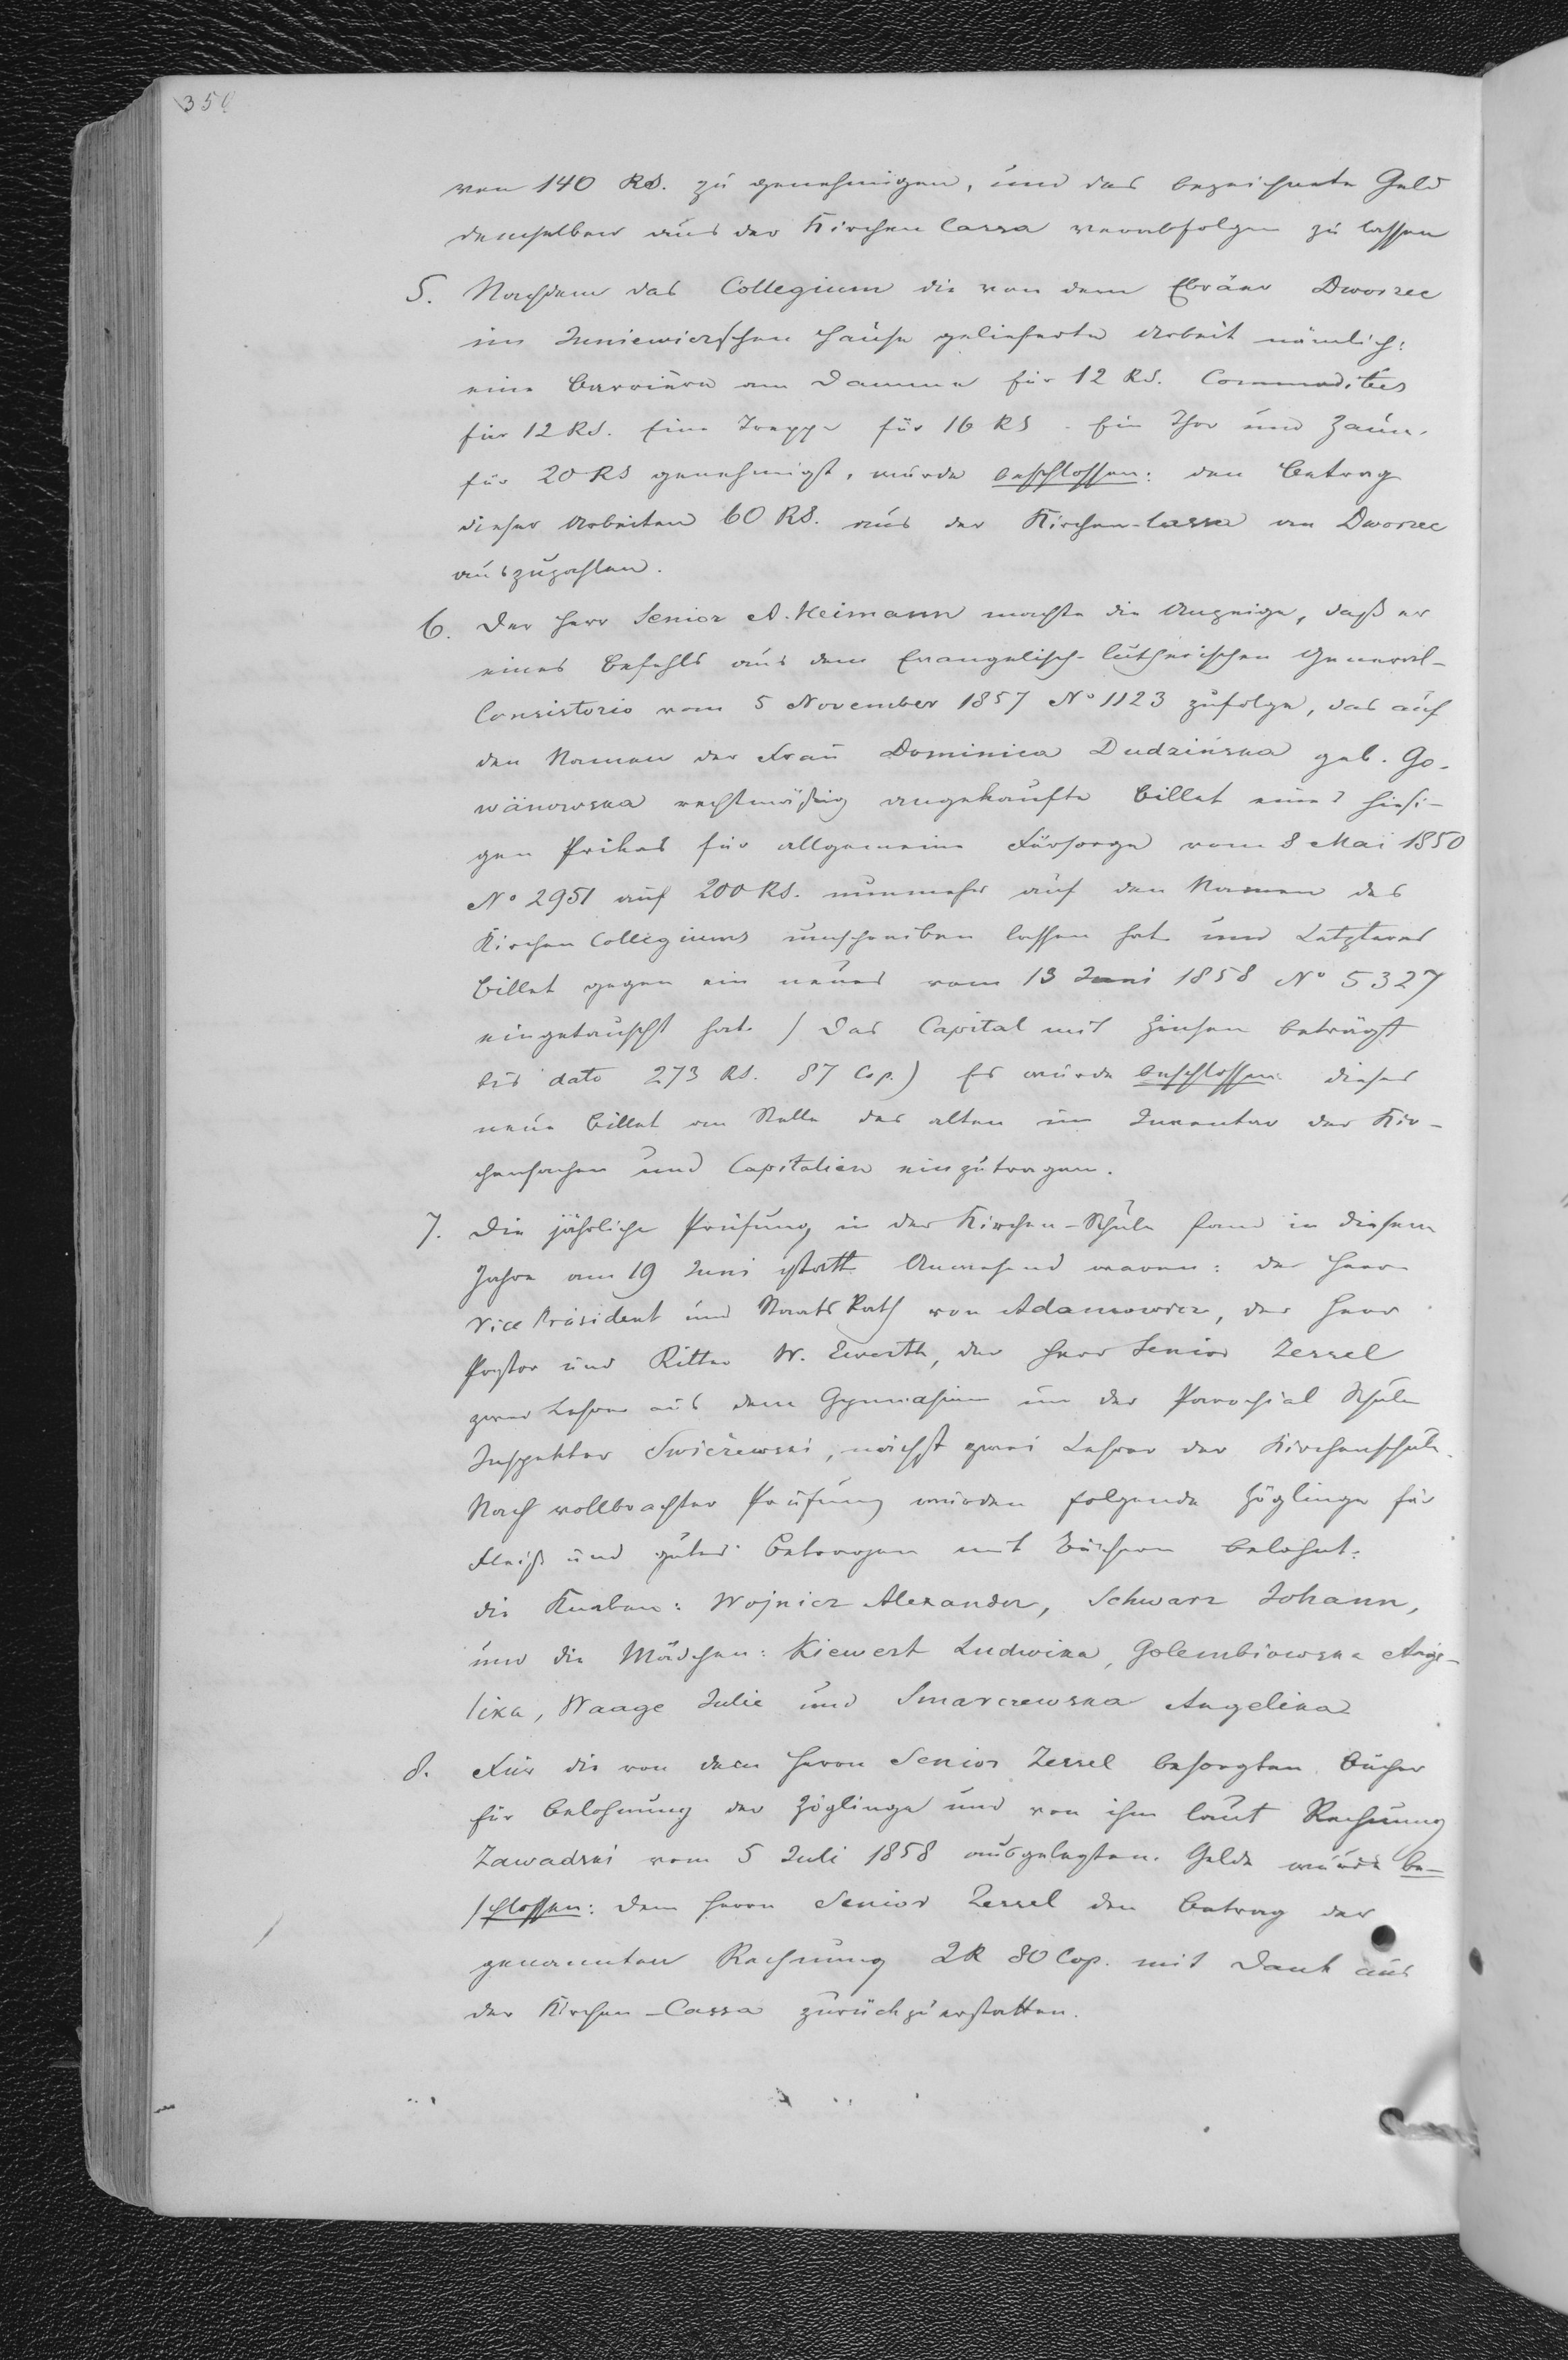 350
von 140 RS. zu genehmigen, und das bezeichnete Geld
demselben aus der Kirchen Cassa verabfolgen zu lassen
5. Nachdem das Collegium die von dem Ebräer Dworzec
im Juniewiczschen Hause gelieferte Arbeit nämlich:
eine Barriere am Damme für 12 RS. Commoditees
für 12 RS. Eine Treppe für 16 RS. Ein Thor und Zaun
für 20 RS genehmigt, wurde beschlossen: den Betrag
dieser Arbeiten 60 RS. aus der Kirchen-Cassa an Dworzec
auszuzahlen.
6. Der Herr Senior A. Heimann machte die Anzeige, daß er
eines Befehls aus dem Evangelisch-lutherischen General-
Consistorio vom 5 November 1857 No 1123 zufolge, das auf
den Namen der Frau Dominica Dudzińska geb. Go-
wänowska rechtmäßig angekaufte Billet eines hiesi-
gen Prikas für allgemeine Fürsorge vom 8 Mai 1850
No 2951 auf 200 RS. nunmehr auf den Namen des
Kirchen Collegiums umschreiben lassen hat und Letzteres
Billet gegen ein neues vom 13 Juni 1858 No 5327
eingetauscht hat. / Das Capital mit Zinsen beträgt
bis dato 273 RS. 87 Cop.) Es wurde beschlossen: dieses
neue Billet an Stelle des alten im Inventar der Kir-
chensachen und Capitalien einzutragen.
7. Die jährliche Prüfung in der Kirchen-Schule fand in diesem
Jahre am 19 Juni statt Anwesend waren: der Herr
Vice Präsident und Staats Rath von Adamowicz, der Herr
Pastor und Ritter W. Ewerth, der Herr Senior Zessel
zwei Lehrer aus dem Gymnasium und der Parochial Schule
Inspektor Swiczewski, nächst zwei Lehrer der Kirchenschule.
Nach vollbrachter Prüfung wurden folgende Zöglinge für
Fleiß und gutes Betragen mit Büchern belohnt:
die Knaben: Wojnicz Alexander, Schwarz Johann,
und die Mädchen: Kiewert Ludwika, Golembiowska Ange-
lika, Waage Julie und Smarczewska Angelika
8. Für die von dem Herrn Senior Zessel besorgten Bücher
für Belohnung der Zöglinge und von ihm laut Rechnung
Zawadski vom 5 Juli 1858 ausgelegten Gelde wurde be-
schlossen: dem Herrn Senior Zessel den Betrag der
genannten Rechnung 2R 80 Cop. mit Dank aus
der Kirchen-Cassa zurückzuerstatten.